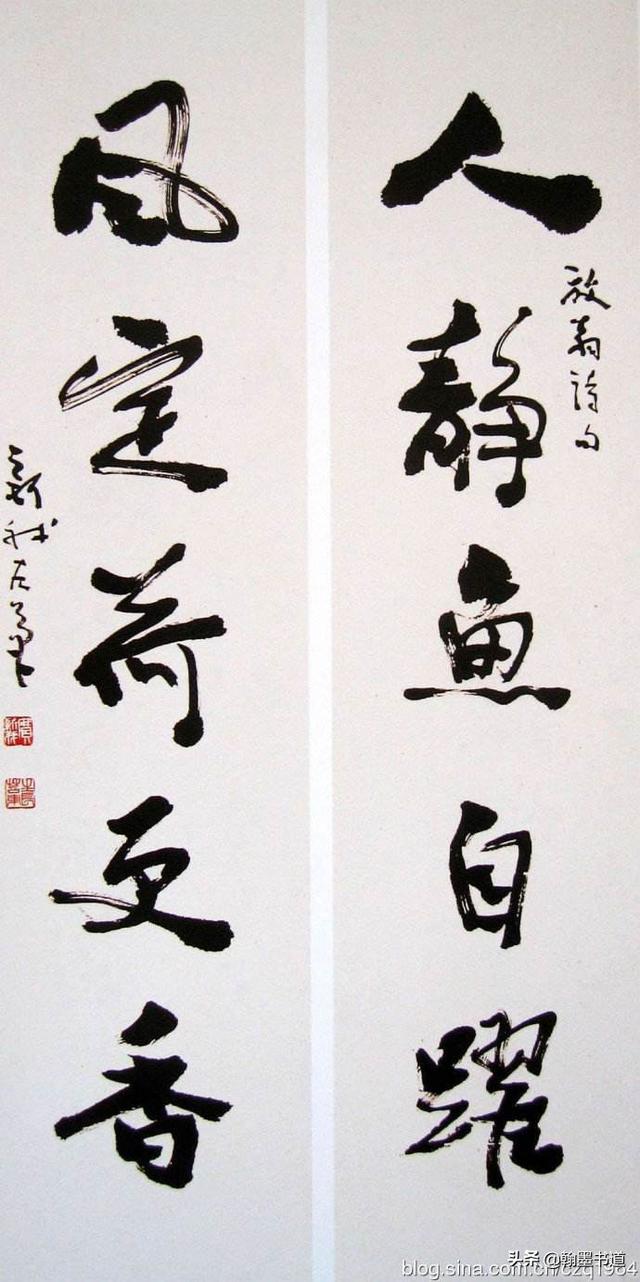 人静鱼自躍
放翁詩句
风定荷更香
新我左筆
头条 @翰墨书道
blog.sina.com.cn/czq1964